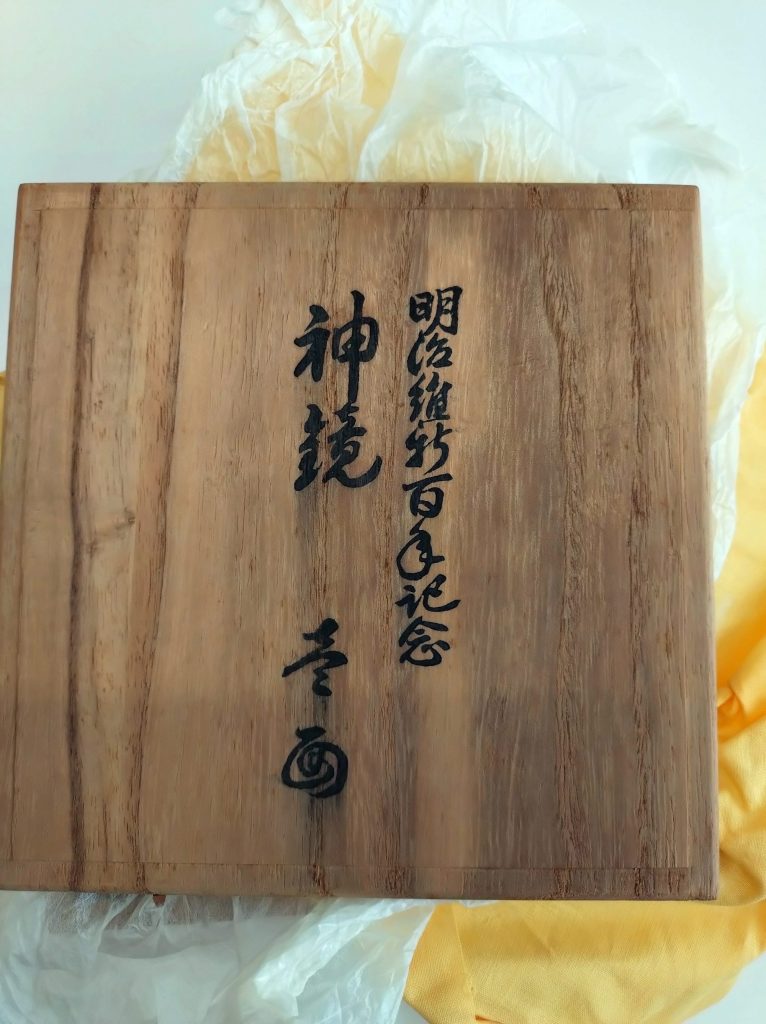 明治維新百年記念
神鏡 壱面